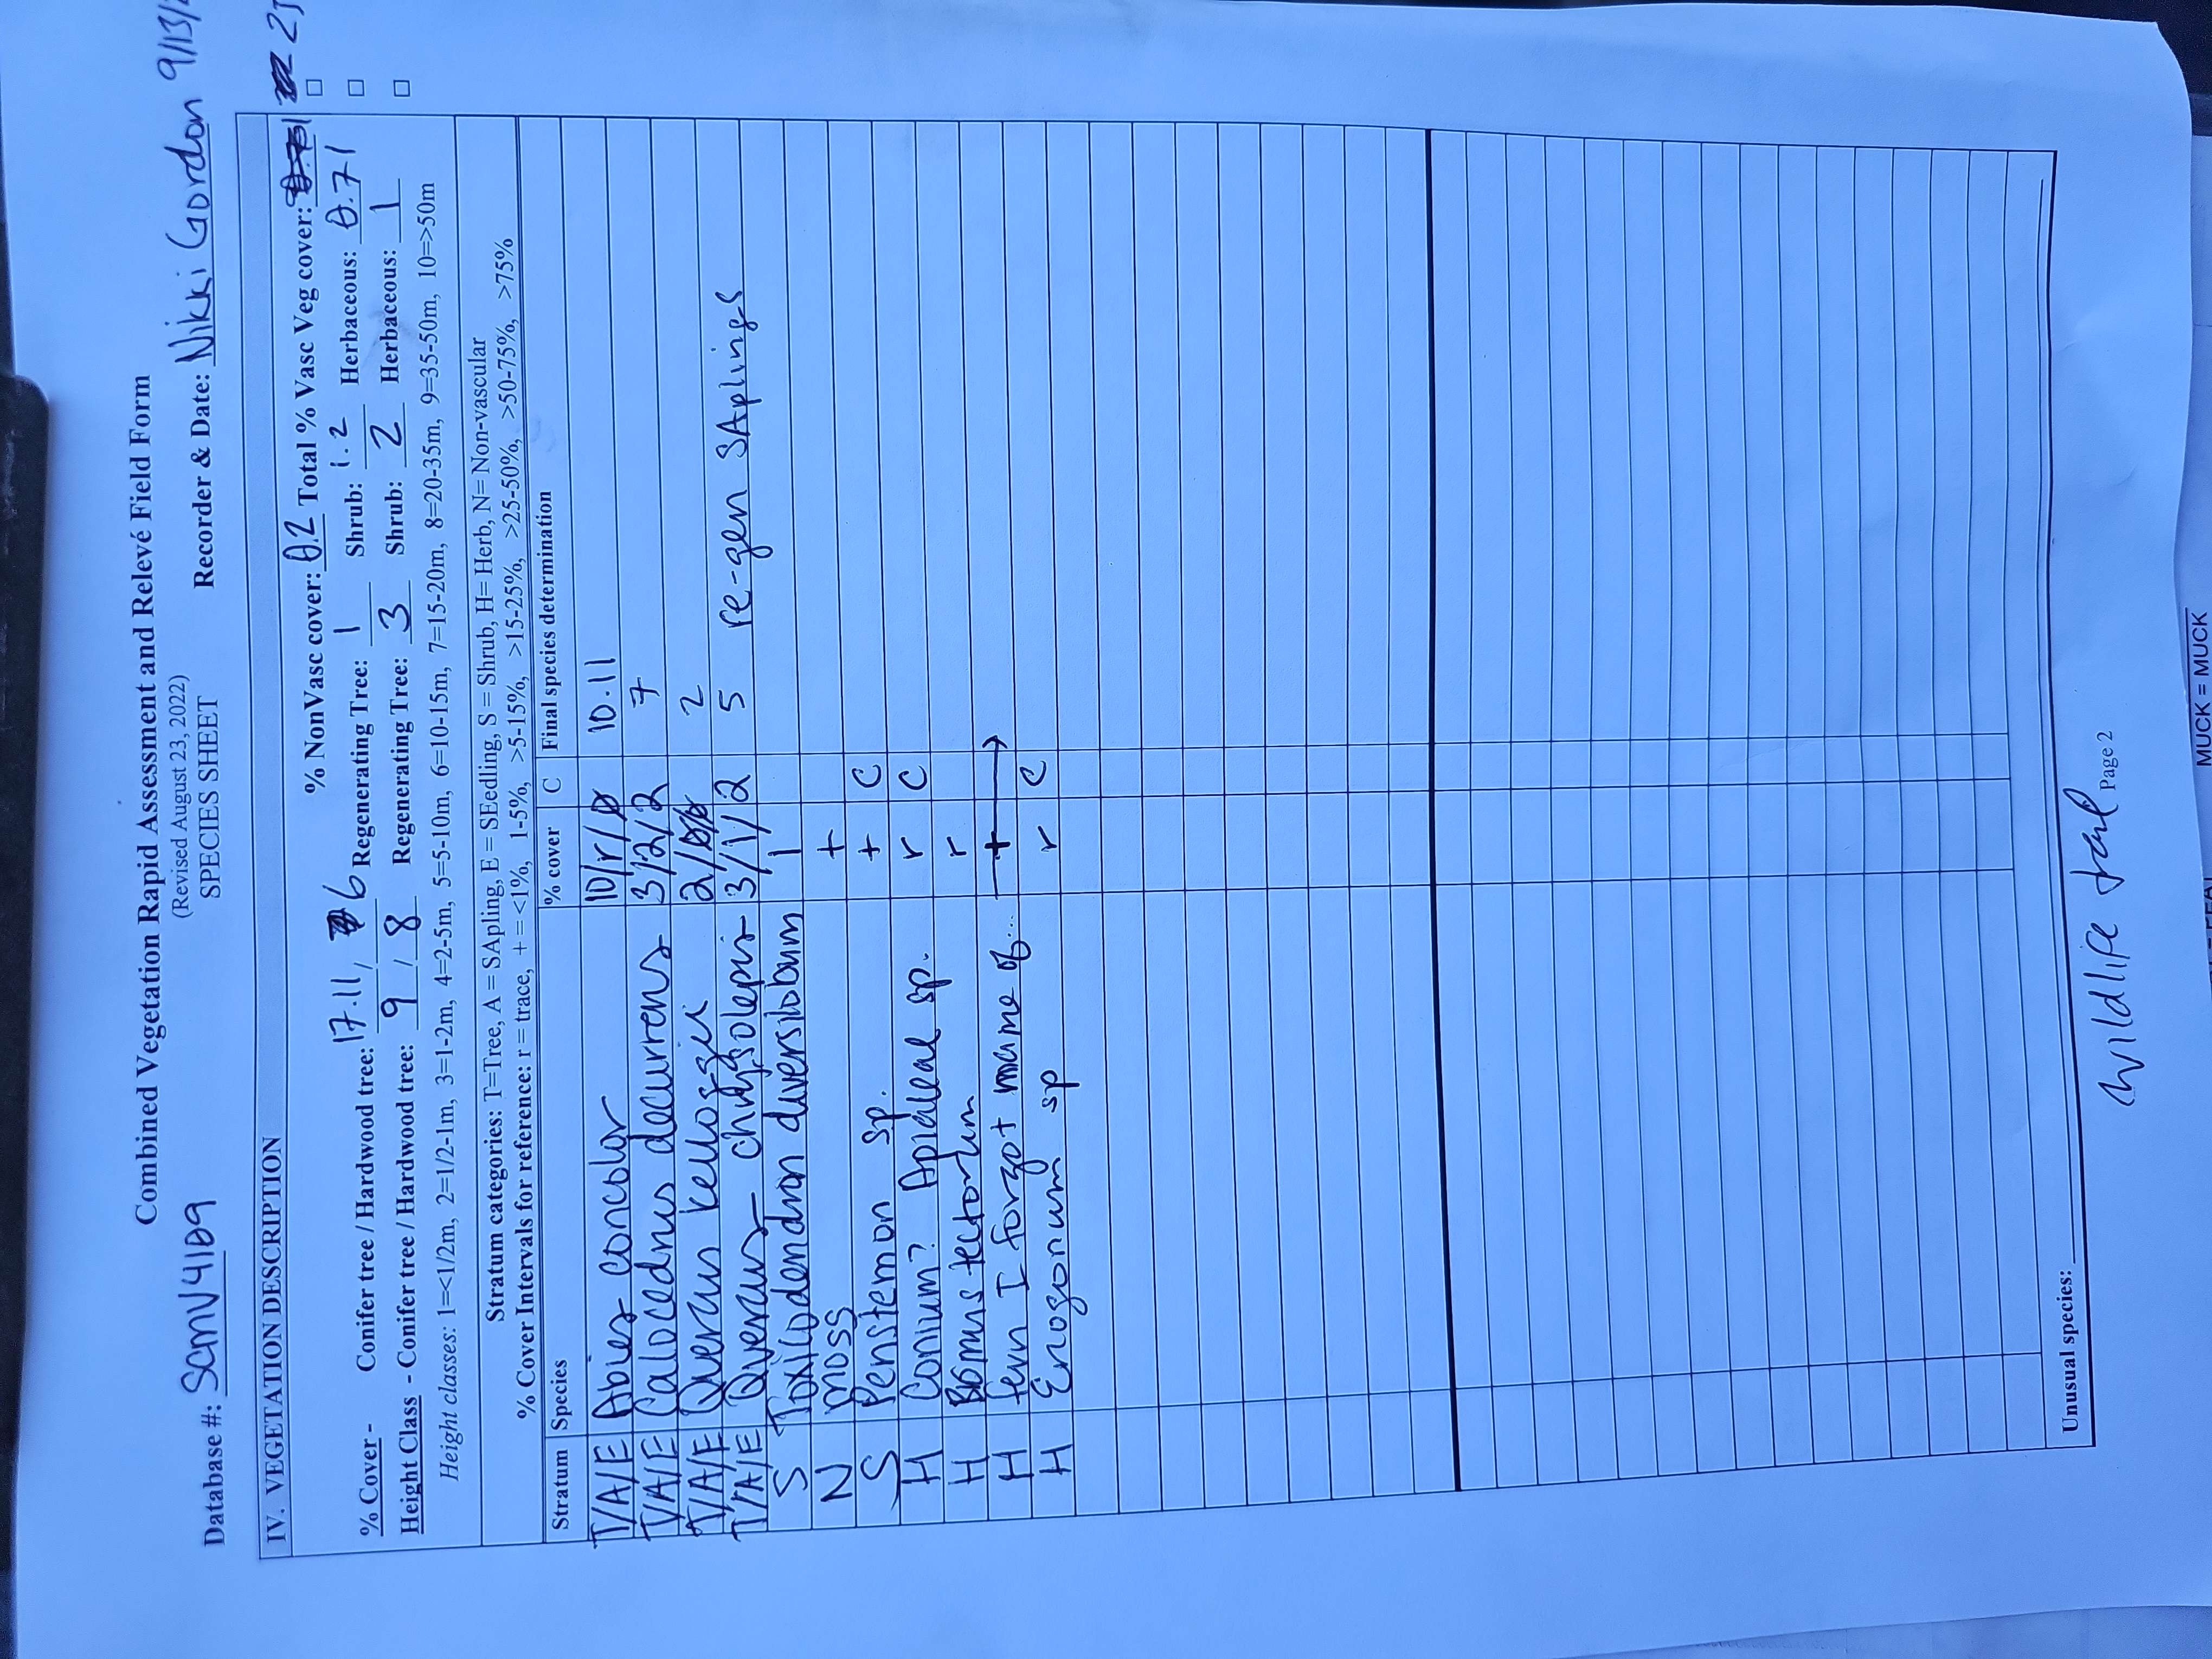 Combined Vegetation Rapid Assessment and Relevé Field Form
(Revised August 23, 2022)
SPECIES SHEET
Database #: SCMV4109 Recorder & Date: Nikki Gordon 9/13/
IV. VEGETATION DESCRIPTION
% NonVasc cover: 0.2 Total % Vasc Veg cover:
% Cover - Conifer tree / Hardwood tree: 17.11 / 6 Regenerating Tree: 1 Shrub: 1.2 Herbaceous: 0.71 □
Height Class - Conifer tree / Hardwood tree: 9 / 8 Regenerating Tree: 3 Shrub: 2 Herbaceous: 1 □
Height classes: 1=<1/2m, 2=1/2-1m, 3=1-2m, 4=2-5m, 5=5-10m, 6=10-15m, 7=15-20m, 8=20-35m, 9=35-50m, 10=>50m
Stratum categories: T=Tree, A = SApling, E = SEedling, S = Shrub, H= Herb, N= Non-vascular
% Cover Intervals for reference: r = trace, + = <1%, 1-5%, >5-15%, >15-25%, >25-50%, >50-75%, >75%
Stratum Species % cover C Final species determination
T/A/E Abies concolor 10/r/0 10.11
T/A/E Calocedrus decurrens 3/2/2 7
T/A/E Quercus kelloggii 2/0/0 2
T/A/E Quercus chrysolepis 3/1/2 5 re-gen SAplings
S Toxicodendron diversilobum 1
N moss +
S Penstemon sp. + C
H Conium? Apiaceae sp. r C
H Bromus tectorum r
H fern I forgot name of... +
H Eriogonum sp r C
Unusual species:
Page 2
wildlife trail
MUCK = MUCK